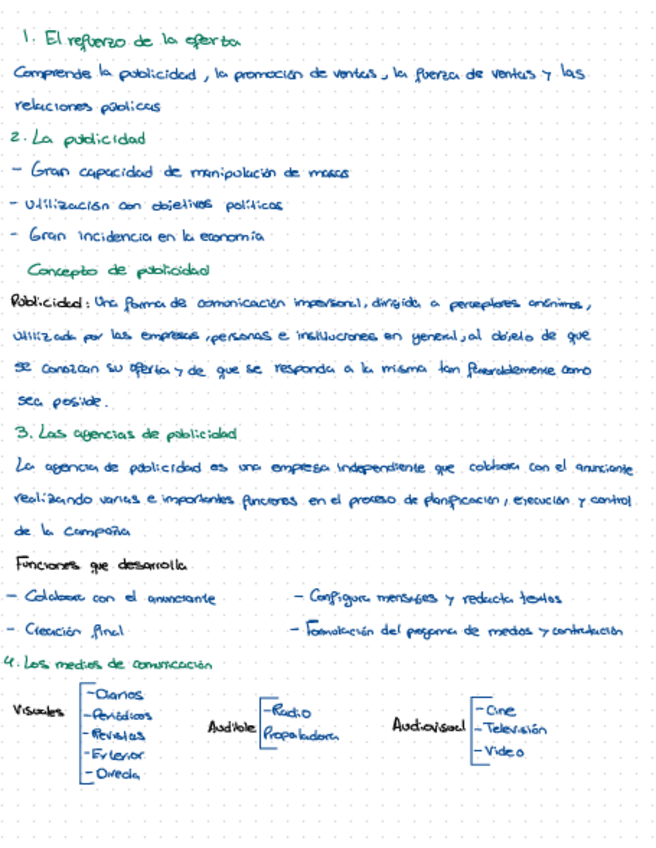 1. El refuerzo de la oferta
Comprende la publicidad, la promoción de ventas, la fuerza de ventas y las
relaciones públicas
2. La publicidad
- Gran capacidad de manipulación de masas
- Utilización con objetivos políticos
- Gran incidencia en la economía
Concepto de publicidad
Publicidad: Una forma de comunicación impersonal, dirigida a perceptores anónimos,
utilizada por las empresas, personas e instituciones en general, al objeto de que
se conozcan su oferta y de que se responda a la misma tan favorablemente como
sea posible.
3. Las agencias de publicidad
La agencia de publicidad es una empresa independiente que colabora con el anunciante
realizando varias e importantes funciones en el proceso de planificación, ejecución y control
de la campaña
Funciones que desarrolla
- Colabora con el anunciante
- Configura mensajes y redacta textos
- Creación final
- Formulación del programa de medios y contratación
4. Los medios de comunicación
Visuales
- Diarios
- Periódicos
- Revistas
- Exterior
- Directa
Audible
- Radio
Propaladora
Audiovisual
- Cine
- Televisión
- Video